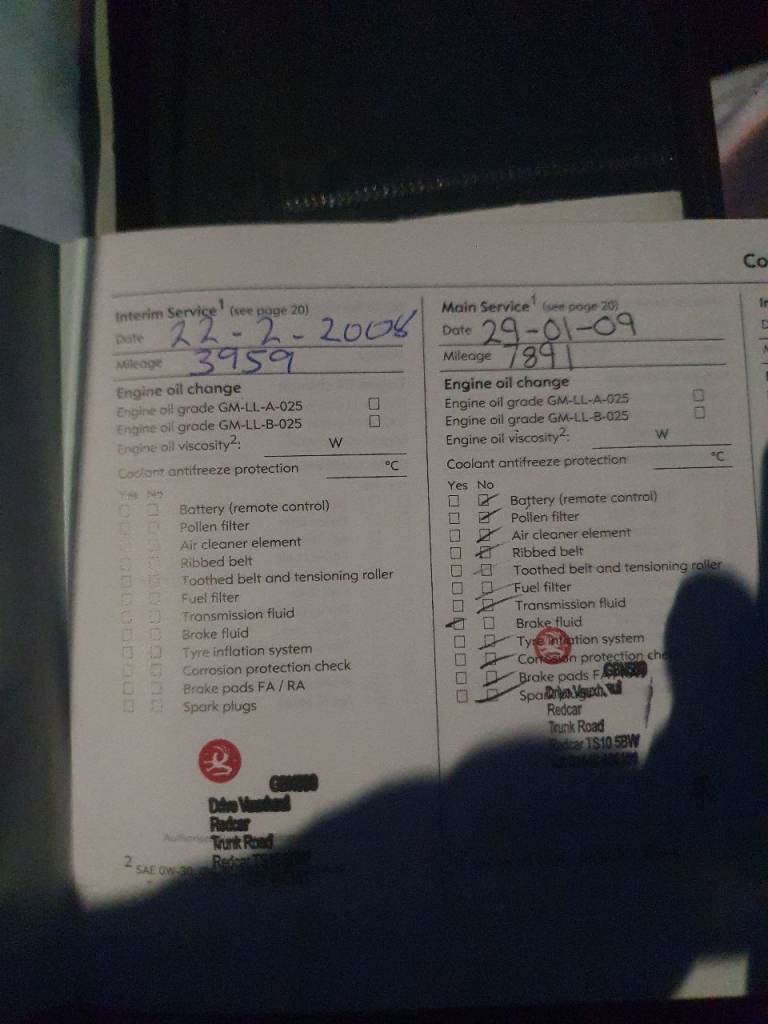 Co
Interim Service1 (see page 20)
Date 22-2-2008
Mileage 3959
Engine oil change
Engine oil grade GM-LL-A-025
Engine oil grade GM-LL-B-025
Engine oil viscosity2: W
Coolant antifreeze protection °C
Yes No
Battery (remote control)
Pollen filter
Air cleaner element
Ribbed belt
Toothed belt and tensioning roller
Fuel filter
Transmission fluid
Brake fluid
Tyre inflation system
Corrosion protection check
Brake pads FA / RA
Spark plugs
Drive Vauxhall
Redcar
Trunk Road
Redcar
2 SAE 0W-30
Main Service1 (see page 20)
Date 29-01-09
Mileage 7891
Engine oil change
Engine oil grade GM-LL-A-025
Engine oil grade GM-LL-B-025
Engine oil viscosity2: W
Coolant antifreeze protection °C
Yes No
Battery (remote control)
Pollen filter
Air cleaner element
Ribbed belt
Toothed belt and tensioning roller
Fuel filter
Transmission fluid
Brake fluid
Tyre inflation system
Corrosion protection che
Brake pads
Drive Vauxhall
Redcar
Trunk Road
Redcar TS10 5BW